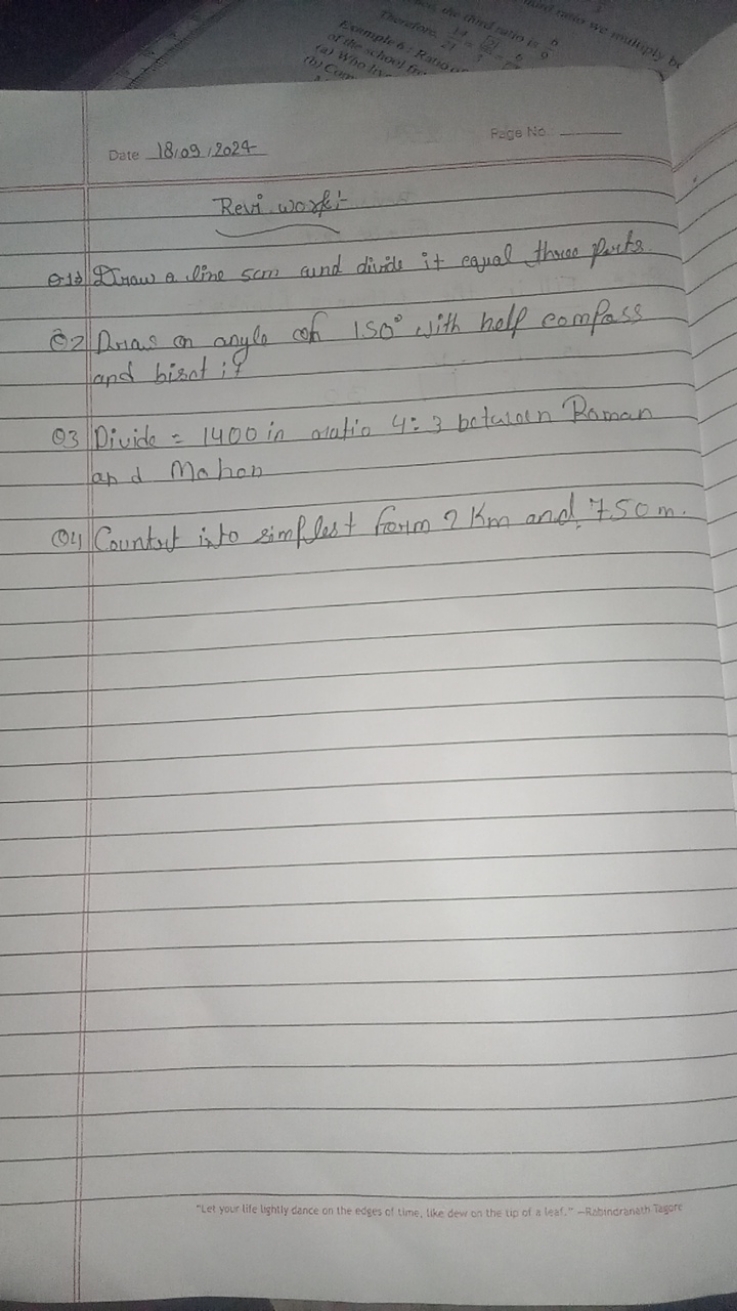 her, the third ratio is 6/9
third ratio we multiply b
Therefore,
Example 6: Ratio o
of the school fre
(a) Who liv
(b) Com
Page No.
Date 18/09/2024
Revi. work:-
Q1) Draw a line 5cm and divide it equal three parts.
Q2 Draw an angle of 150° with help compass
and bisct it
Q3 Divide = 1400 in ratio 4:3 between Raman
and Mohan
Q4 Countvt into simplest form 2 Km and 750 m.
"Let your life lightly dance on the edges of time, like dew on the tip of a leaf." —Rabindranath Tagore